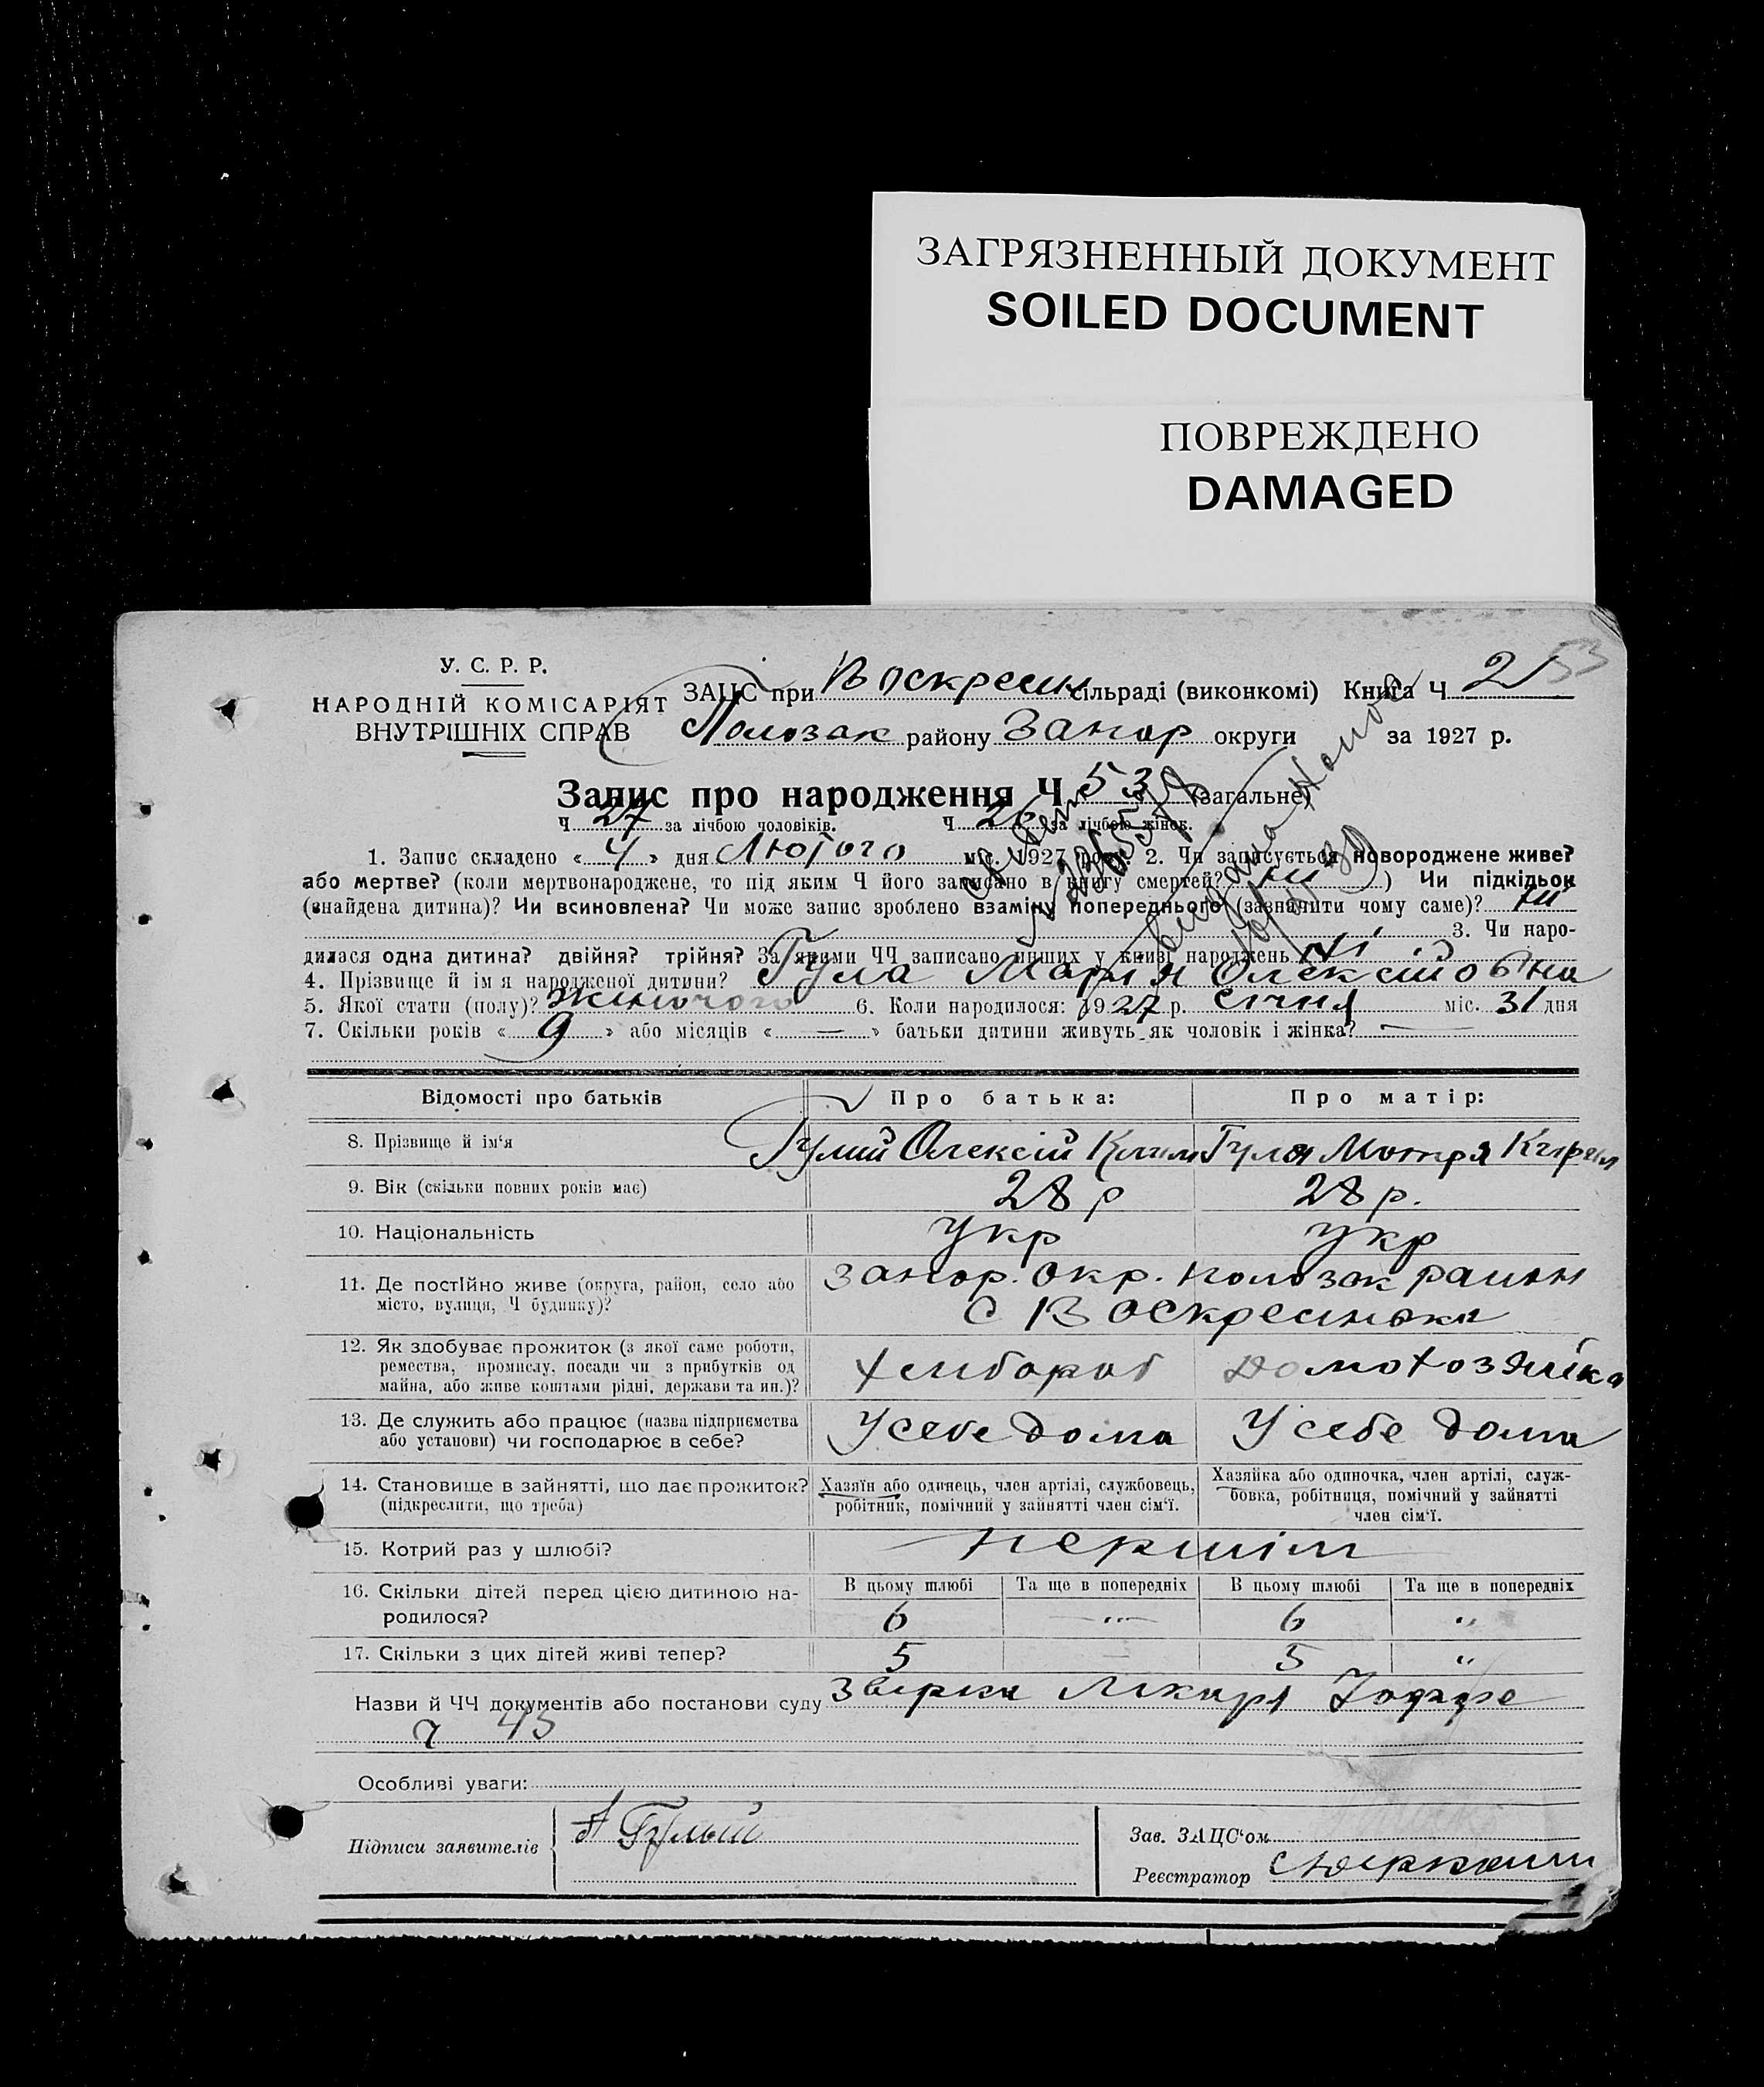 ЗАГРЯЗНЕННЫЙ ДОКУМЕНТ
SOILED DOCUMENT
ПОВРЕЖДЕНО
DAMAGED
53
У. С. Р. Р.
НАРОДНІЙ КОМІСАРІЯТ
ВНУТРІШНІХ СПРАВ
ЗАЦС при Воскресин сільраді (виконкомі) Книга Ч 2
Полозак району Запор округи за 1927 р.
Запис про народження Ч 53 (загальне)
Ч 27 за лічбою чоловіків. Ч 26 за лічбою жінок.
1. Запис складено « 4 » дня Лютого міс. 1927 року 2. Чи записується новороджене живе?
або мертве? (коли мертвонароджене, то під яким Ч його записано в книгу смертей? ні ) Чи підкідьок
(знайдена дитина)? Чи всиновлена? Чи може запис зроблено взамінь попереднього (зазначити чому саме)? ні
3. Чи наро-
дилася одна дитина? двійня? трійня? За якими ЧЧ записано инших у книзі народжень Ні
4. Прізвище й ім я народженої дитини? Гула Марія Олексійовна
5. Якої стати (полу)? Жіночого 6. Коли народилося: 1927 р. Січня міс. 31 дня
7. Скільки років « 9 » або місяців « — » батьки дитини живуть як чоловік і жінка? —
Відомості про батьків Про батька: Про матір:
8. Прізвище й ім'я Гулий Олексій Клим Гула Мотря Кирил
9. Вік (скільки повних років має) 28 р 28 р.
10. Національність Укр Укр
11. Де постійно живе (округа, район, село або Запор. Окр. Полозак район
місто, вулиця, Ч будинку)? С Воскресинька
12. Як здобуває прожиток (з якої саме роботи,
ремества, промислу, посади чи з прибутків од Хлібороб Домохозяйка
майна, або живе коштами рідні, держави та ин.)?
13. Де служить або працює (назва підприємства У себе дома У себе дома
або установи) чи господарює в себе?
14. Становище в зайнятті, що дає прожиток? Хазяїн або одинець, член артілі, службовець, Хазяйка або одиночка, член артілі, служ-
(підкреслити, що треба) робітник, помічний у зайнятті член сім'ї. бовка, робітниця, помічний у зайнятті
член сім'ї.
15. Котрий раз у шлюбі? першім
16. Скільки дітей перед цією дитиною на- В цьому шлюбі Та ще в попередніх В цьому шлюбі Та ще в попередніх
родилося? 6 — " — 6 "
17. Скільки з цих дітей живі тепер? 5 — 5 "
Назви й ЧЧ документів або постанови суду Лікаря Йоффе
Ч 45
Особливі уваги:
Підписи заявителів А Гулый
Зав. ЗАЦС'ом
Реєстратор